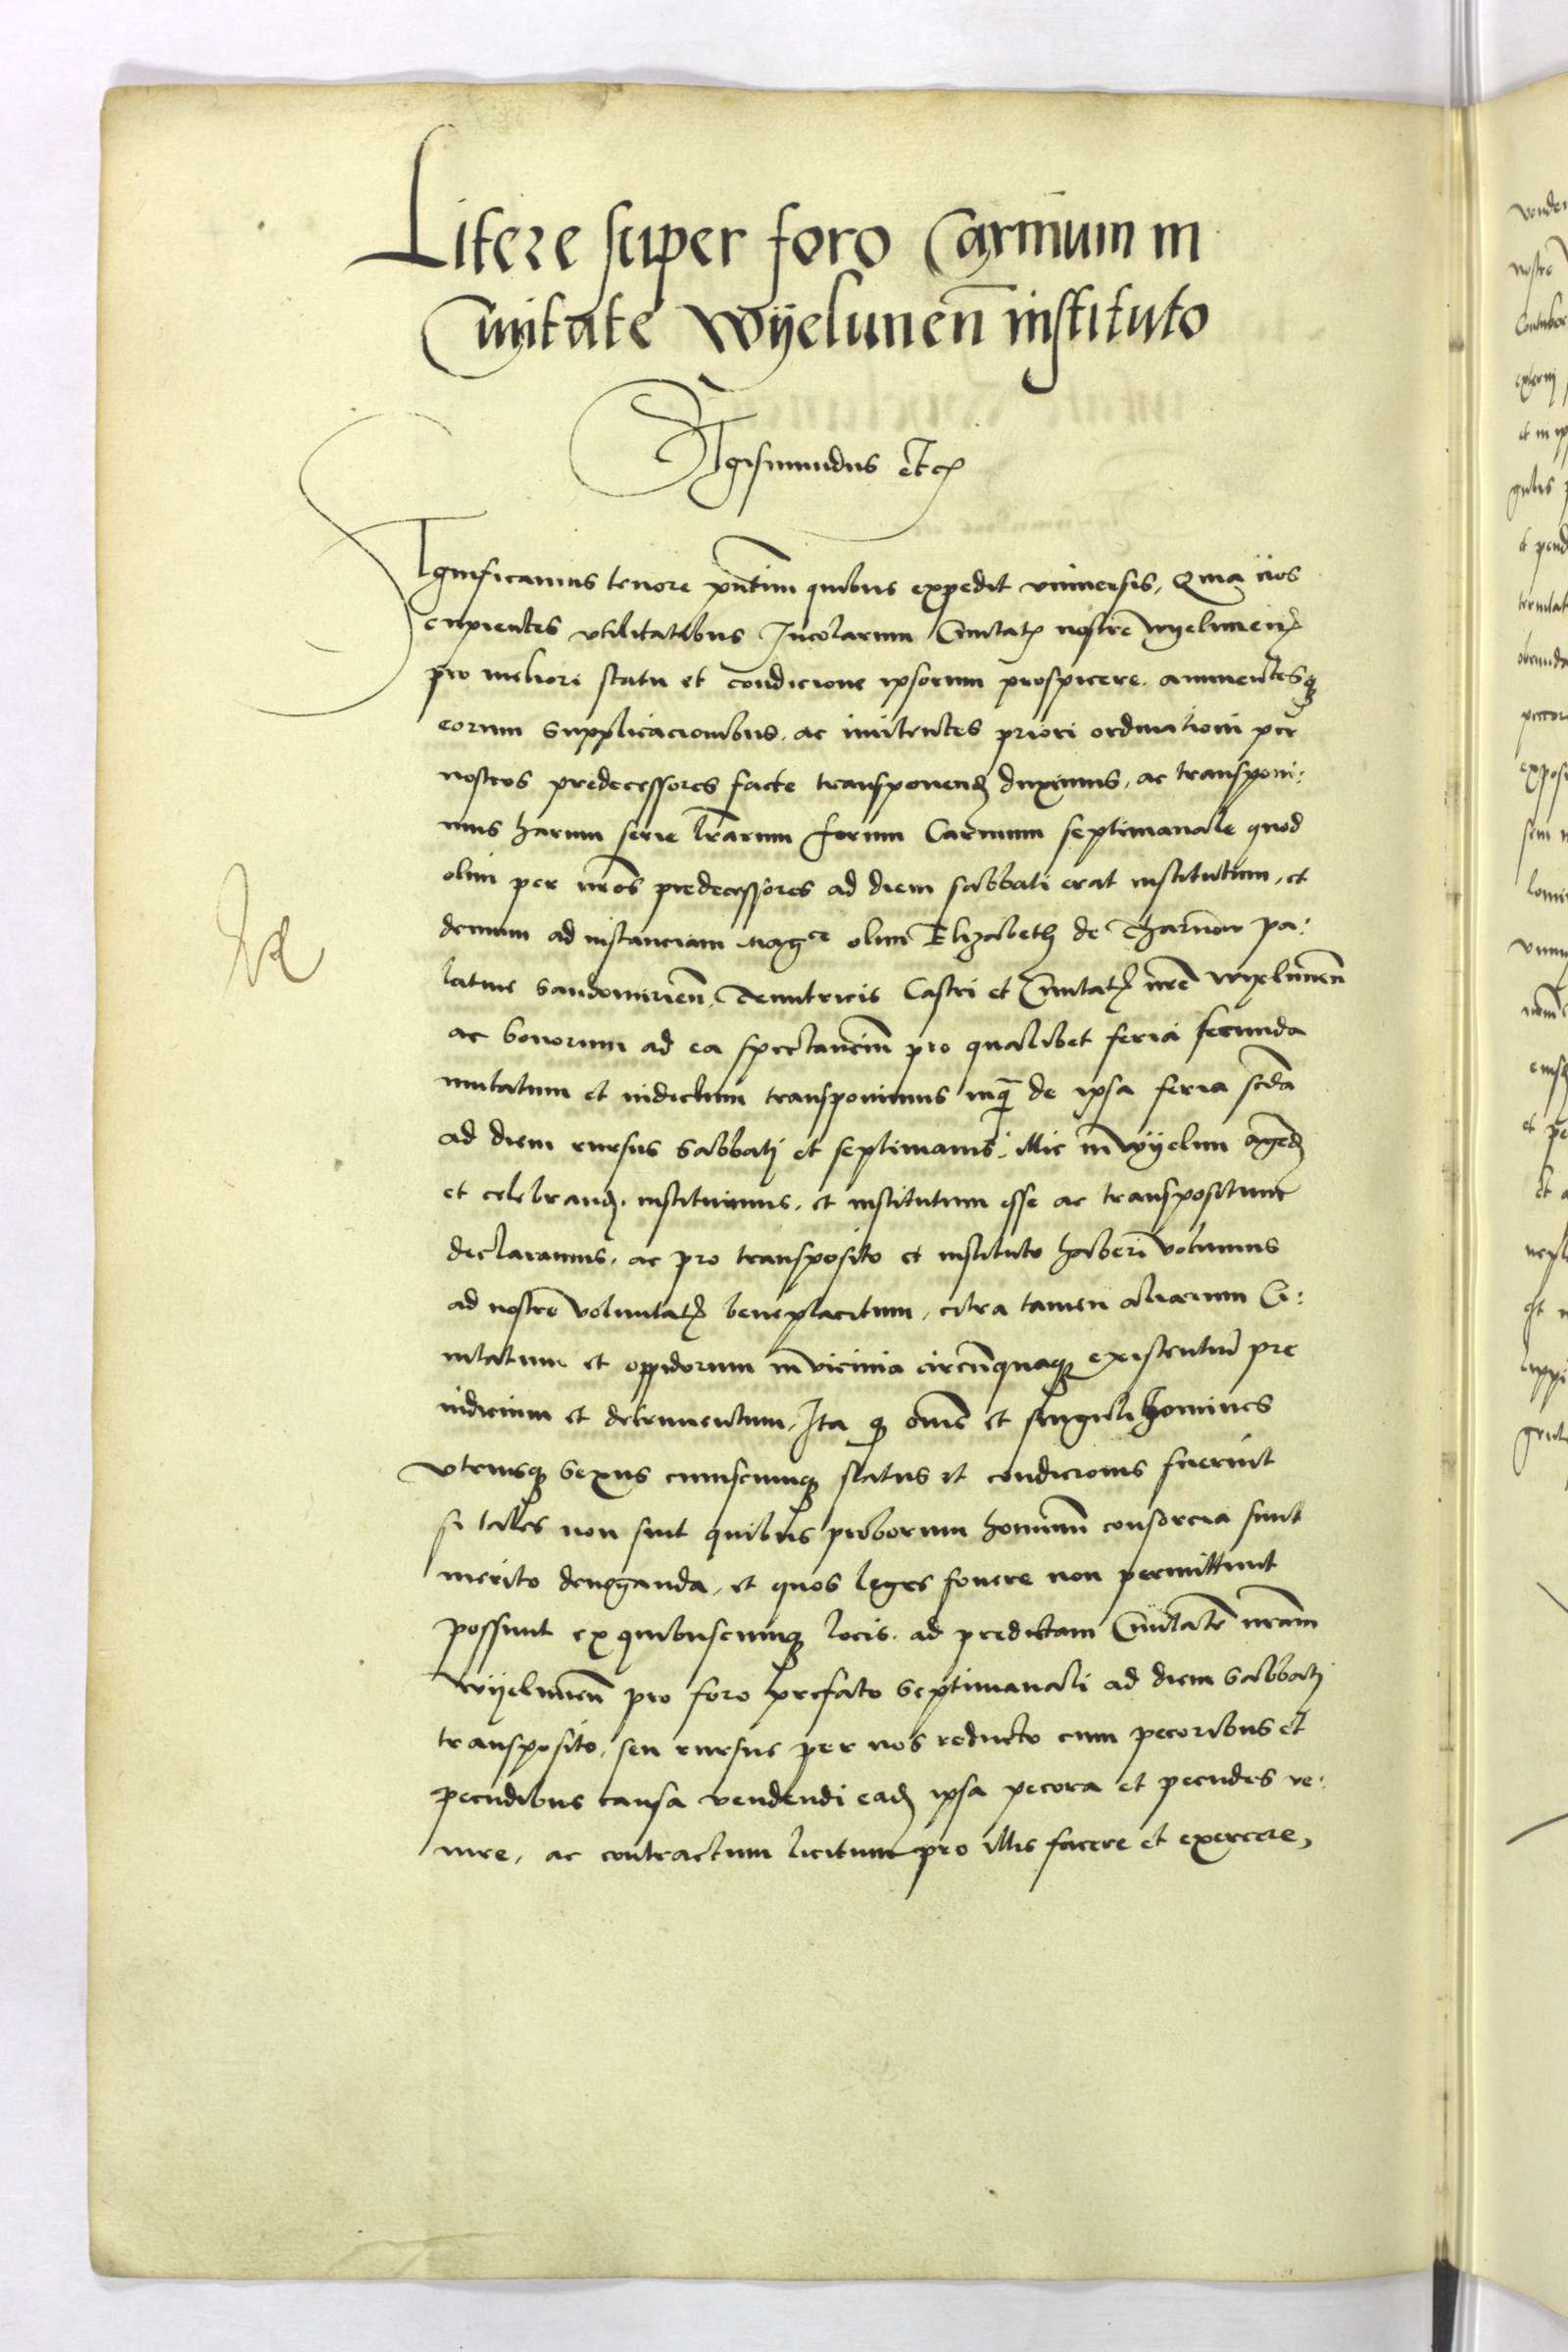 Litere super foro Carnium in
Civitate Wyelunen̄ instituto
Sigismundus etc
Significamus tenore pn̄tium quibus expedit vniuersis, Quia nos
cupientes vtilitatibus Incolarum Ciuitatꝭ nostre Wyelunen̄
pro meliori statu et condicione ipsorum prospicere. annuentesqꝫ
eorum supplicacionibus, ac innitentes priori ordinationi per
nostros predecessores facte transponendꝭ duximus, ac transponi:
mus harum serie lr̄arum forum Carnium septimanale quod
olim per nr̄os predecessores ad diem sabbati erat institutum, et
demum ad instanciam Magce olim Elizabeth de Tharnow pa:
latine Sandomirien̄, Tenutricis Castri et Ciuitatꝭ nr̄e Wyelunen̄
ac bonorum ad ea spectanciū pro qualibet feria secunda
mutatum et indictum transponimus inqꝫ de ipsa feria scd̄a
ad diem rursus Sabbatj et septimanis illic in Wyelun agendꝭ
et celebrandꝭ instituimus, et institutum esse ac transpositum
declaramus, ac pro transposito et instituto haberi volumus
ad nostre voluntatꝭ beneplacitum, citra tamen aliarum Ci:
uitatum et oppidorum in vicinia circūquaqꝫ existentiū pre
iudicium et detrimentum, Ita qꝫ om̄es et singuli homines
vtriusqꝫ sexus cuiuscunqꝫ status et condicionis fuerint
si tales non sint quibus proborum hominū consorcia sunt
merito deneganda, et quos leges fouere non permittunt
possunt ex quibuscunqꝫ locis ad predictam Ciuitatē nr̄am
Wyelunen̄ pro foro prefato septimanali ad diem Sabbatj
transposito, seu rursus per nos reducto cum pecoribus et
pecudibus causa vendendi eadꝭ ipsa pecora et pecudes ve:
nire, ac contractum licitum pro illis facere et exercere,